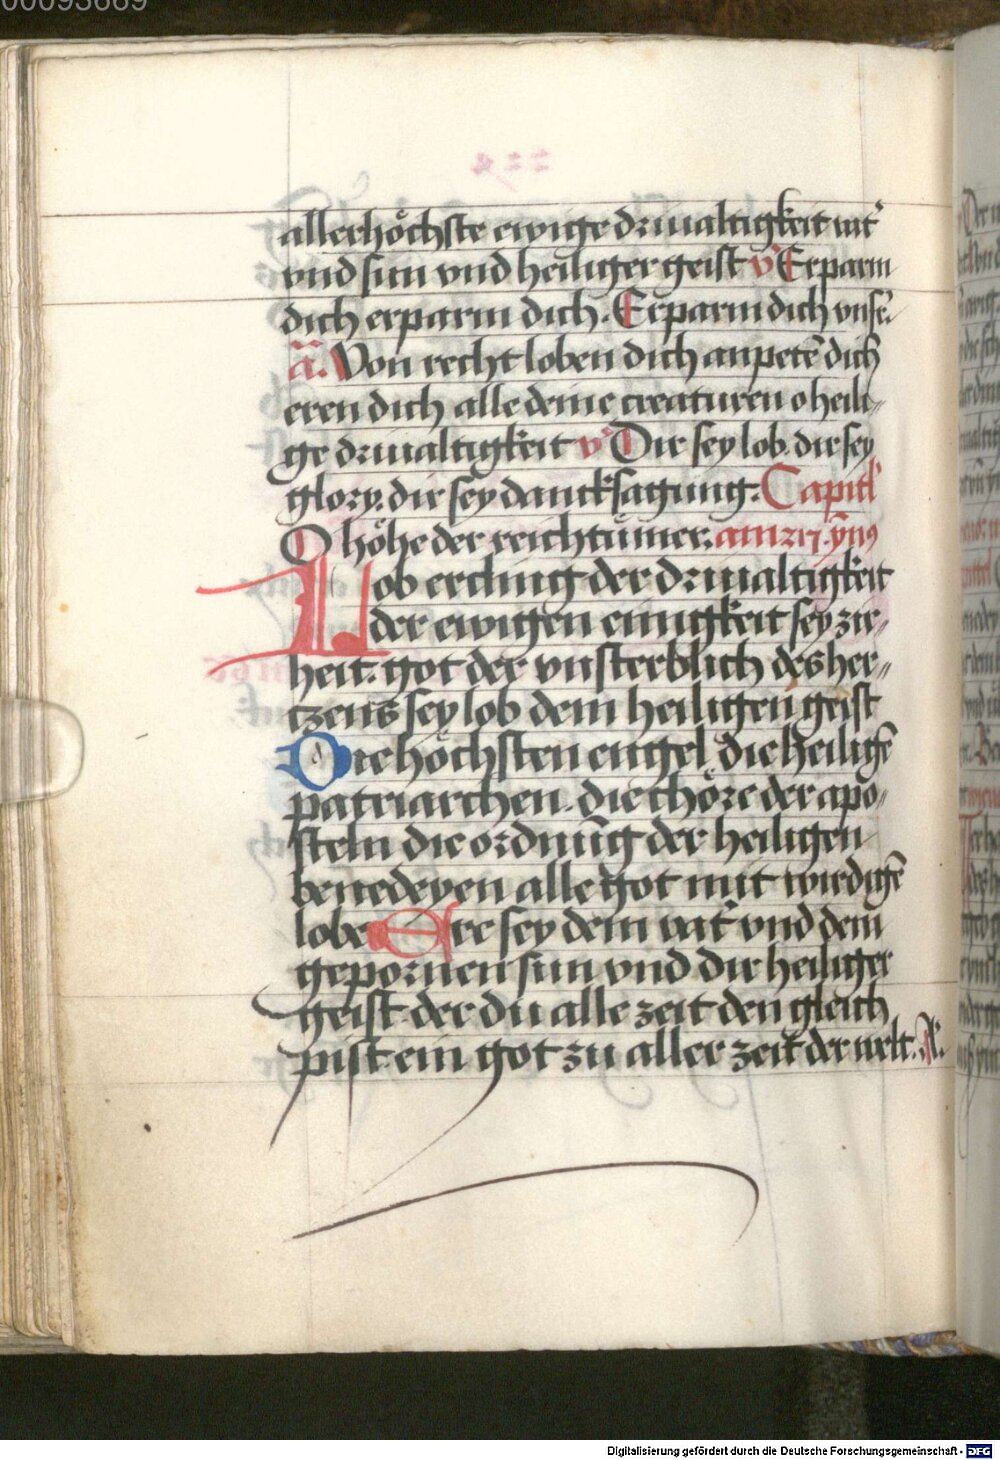 00093669
allerhöchste ewige driualtigkeit vat̕
vnd sun vnd heiliger geist v̕ Erparm
dich erparm dich. Erparm dich vnser̕
a. Von recht loben dich anpetē dich
eren dich alle deine creaturen o heili„
ge driualtigkeit v̕ Dir sey lob. dir sey
glory. dir sey dancksagung. Capitl̕
O höhe der reichtümer. ymnꝰ
Lob erching der driualtigkeit
der ewigen einigkeit sey zir„
heit. got der vnsterblich des her„
tzens sey lob dem heiligen geist
Die höchsten engel die heiligē
patriarchen. die chöre der apo„
steln die ordnūg der heiligen
benedeyen alle got mit wirdigē
lobe Ere sey dem vat̕ vnd dem
gepornen sun vnd dir heiliger
geist. der du alle zeit den gleich
pist. ein got zu aller zeit der welt. A̕.
Digitalisierung gefördert durch die Deutsche Forschungsgemeinschaft - DFG